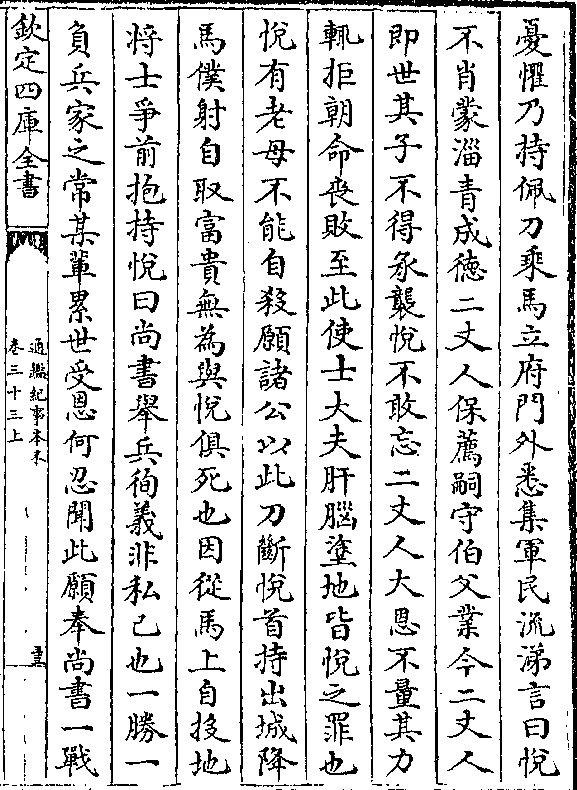 憂懼乃持佩刀乘馬立府門外悉集軍民流涕言曰悅
不肖蒙淄青成德二丈人保薦嗣守伯父業今二丈人
即世其子不得承襲悅不敢忘二丈人大恩不量其力
輒拒朝命喪敗至此使士大夫肝腦塗地皆悅之罪也
悅有老母不能自殺願諸公以此刀斷悅首持出城降
馬僕射自取富貴無為與悅俱死也因從馬上自投地
将士爭前抱持悅曰尚書舉兵徇義非私己也一勝一
負兵家之常某輩累世受恩何忍聞此願奉尚書一戰
欽定四庫全書
通鑑紀事本末
卷三十三上